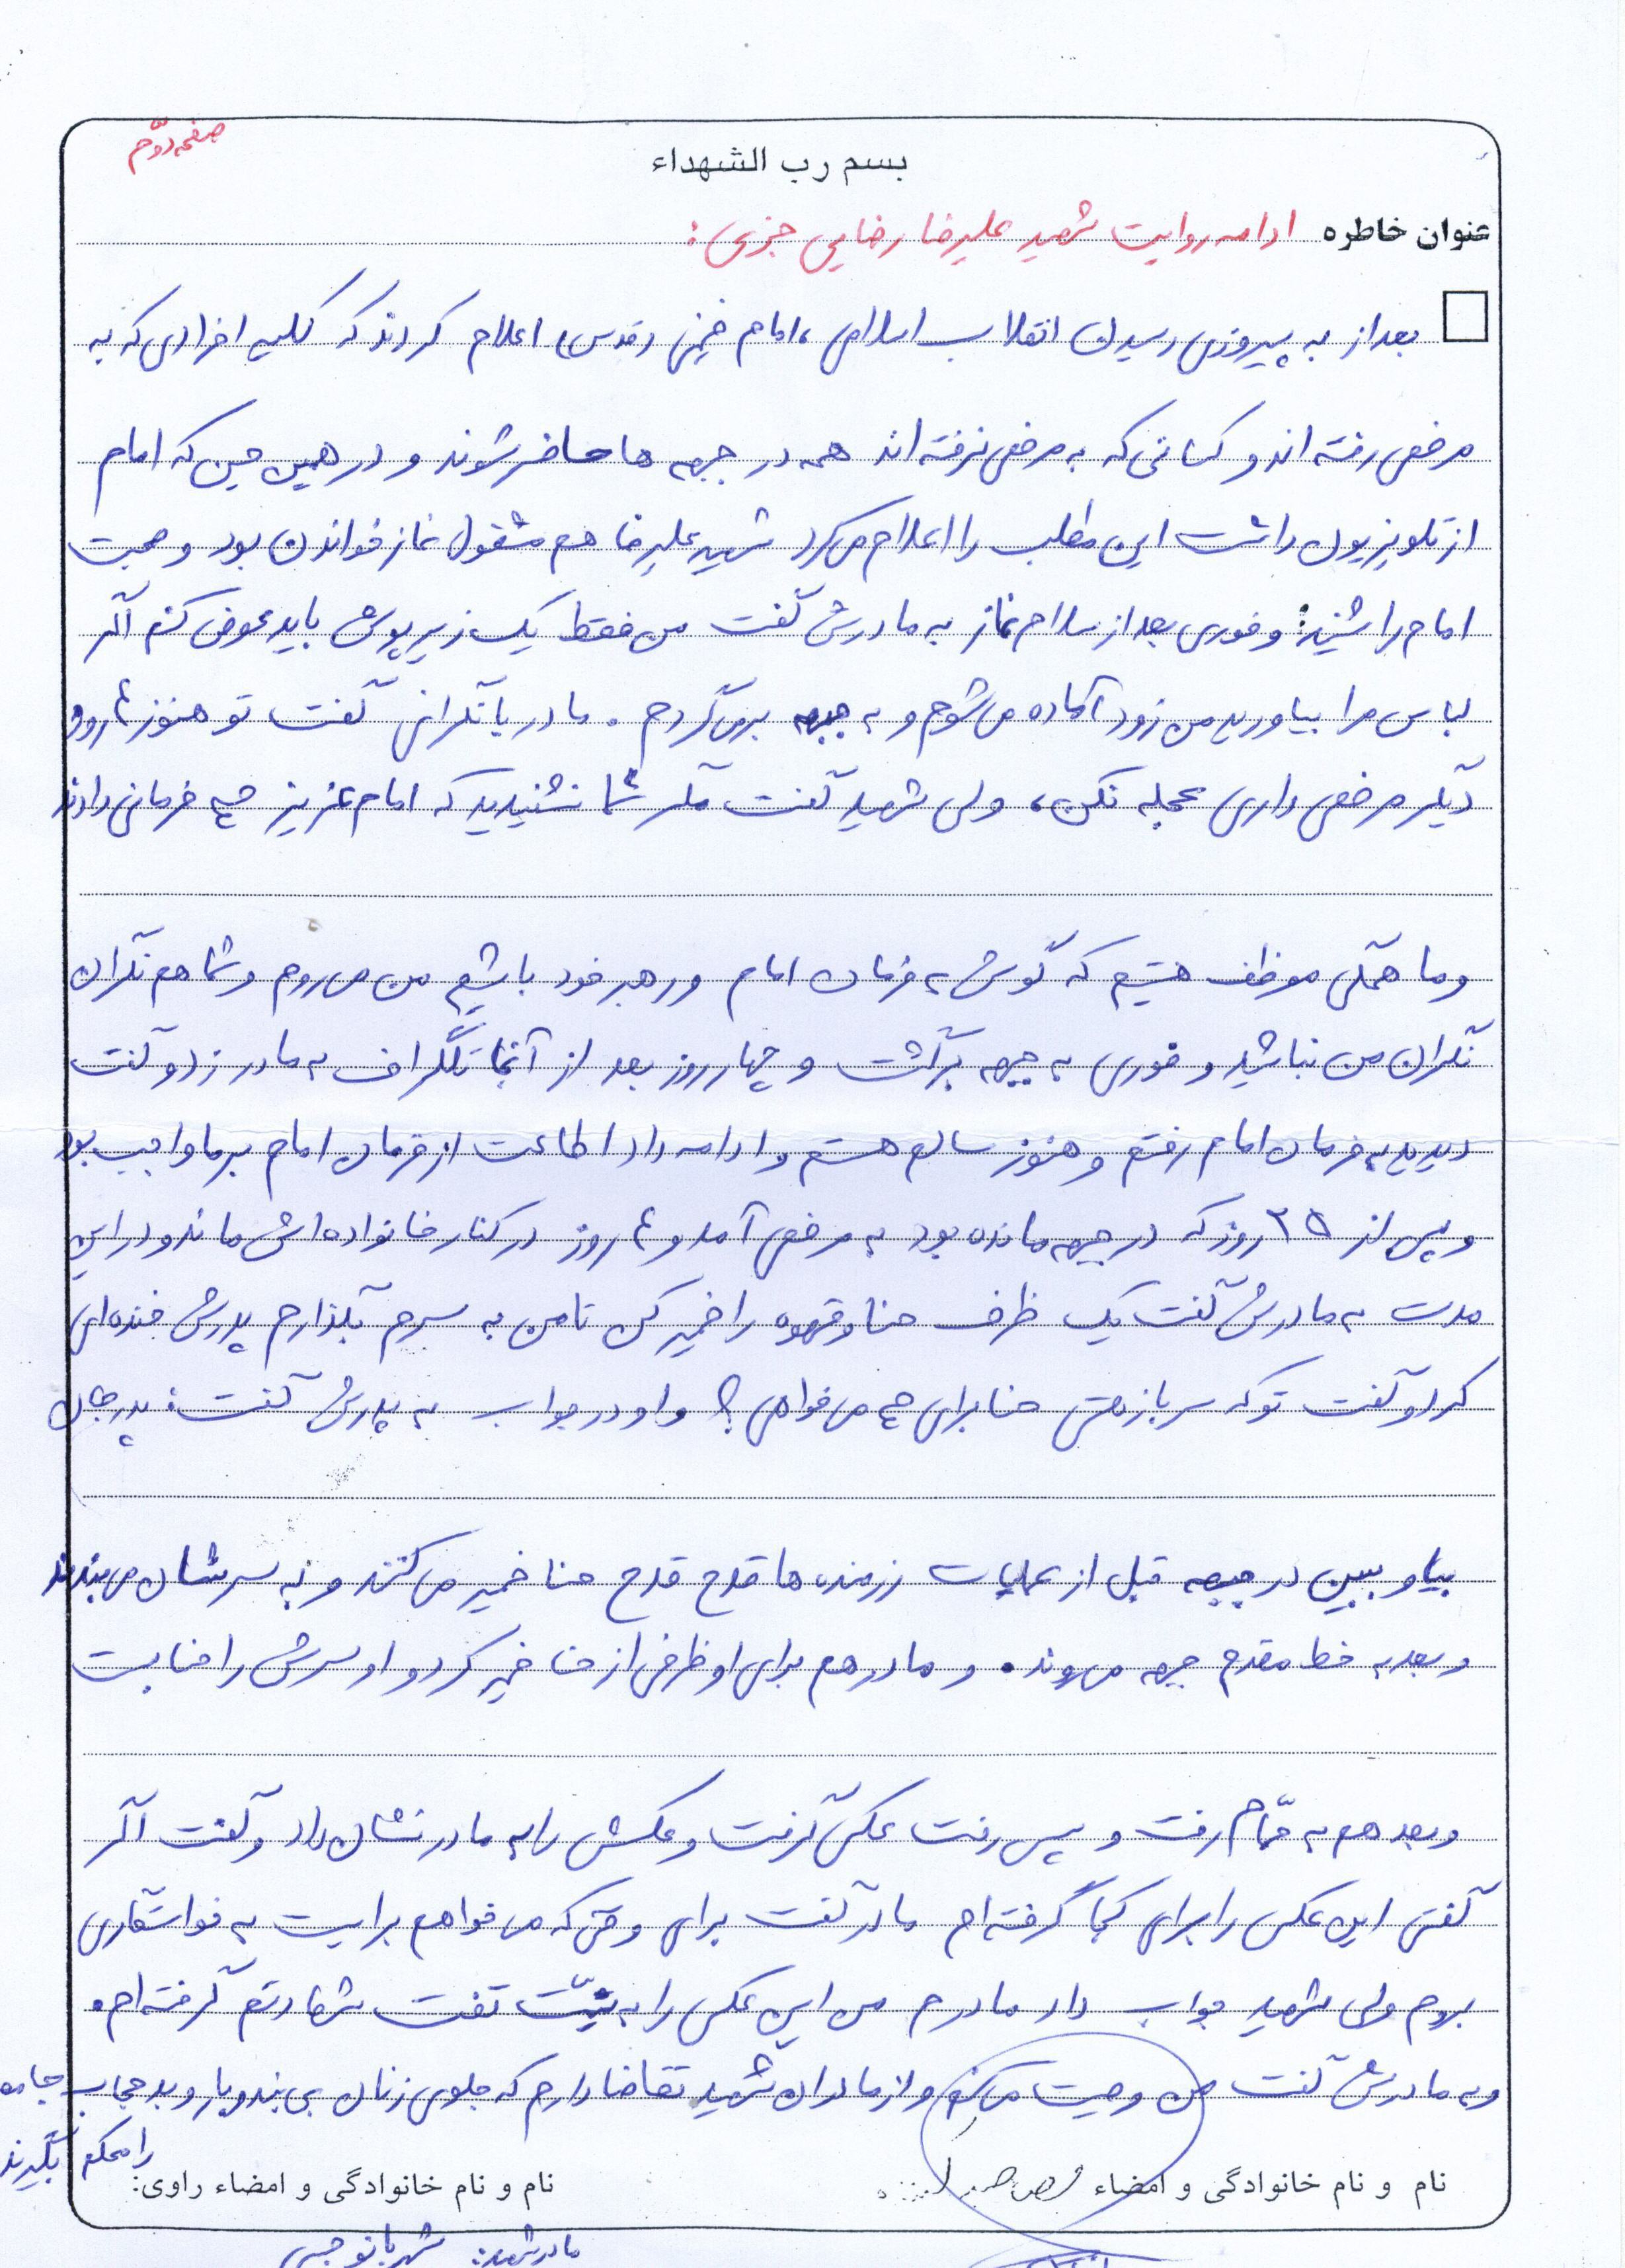 صفحه دوّم
بسم رب الشهداء
عنوان خاطره ادامه روایت شهید علیرضا رضایی جزی:
بعد از به پیروزی رسیدن انقلاب اسلامی، امام خمینی (قدس) اعلام کردند که کلیه افرادی که به
مرخصی رفته اند و کسانی که به مرخصی نرفته اند همه در جبهه ها حاضر شوند و در همین حین که امام
از تلویزیون داشت این مطلب را اعلام می کرد شهید علیرضا هم مشغول نماز خواندن بود و صحبت
امام را شنید: و فوری بعد از سلام نماز به مادرش گفت من فقط یک زیرپوش باید عوض کنم اگر
لباس مرا بیاورید من زود آماده می شوم و به جبهه برمی گردم. مادر با نگرانی گفت تو هنوز ۶ روز
دیگر مرخصی داری عجله نکن، ولی شهید گفت مگر شما نشنیدید که امام عزیز چه فرمانی دادند
و ما همگی موظف هستیم که گوش به فرمان امام و رهبر خود باشیم من می روم و شما هم نگران
نگران من نباشید و فوری به جبهه برگشت و چهار روز بعد از آنجا تلگراف به مادر زد و گفت
دیدید به فرمان امام رفتم و هنوز سالم هستم و ادامه داد اطاعت از فرمان امام بر ما واجب بود
و پس از ۲۵ روز که در جبهه مانده بود به مرخصی آمد و ۶ روز در کنار خانواده اش ماند و در این
مدت به مادرش گفت یک ظرف حنا و قهوه را خمیر کن تا من به سرم بگذارم پدرش خنده ای
کرد و گفت تو که سرباز هستی حنا برای چه می خواهی؟ و او در جواب به پدرش گفت: پدر جان
بیا و ببین در جبهه قبل از عملیات رزمنده ها قدح قدح حنا خمیر می کنند و به سرشان می بندند
و بعد به خط مقدم جبهه می روند. و مادر هم برای او ظرفی از حنا خمیر کرد و او سرش را حنا بست
و بعد هم به حمّام رفت و پس رفت عکس گرفت و عکسش را به مادر نشان داد و گفت اگر
گفتی این عکس را برای کجا گرفته ام مادر گفت برای وقتی که می خواهم برایت به خواستگاری
بروم ولی شهید جواب داد مادرم من این عکس را به نیّت تفت شهادتم گرفته ام.
و به مادرش گفت من وصیت می کنم و از مادران شهید تقاضا دارم که جلوی زنان بی بندوبار و بدحجاب جامعه
را محکم بگیرند
نام و نام خانوادگی و امضاء
نام و نام خانوادگی و امضاء راوی:
مادر شهید: شهربانو